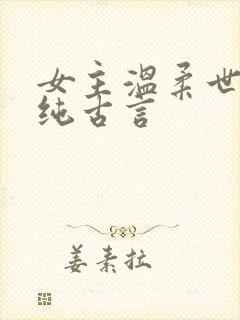 女主温柔世
纯古言
姜素拉